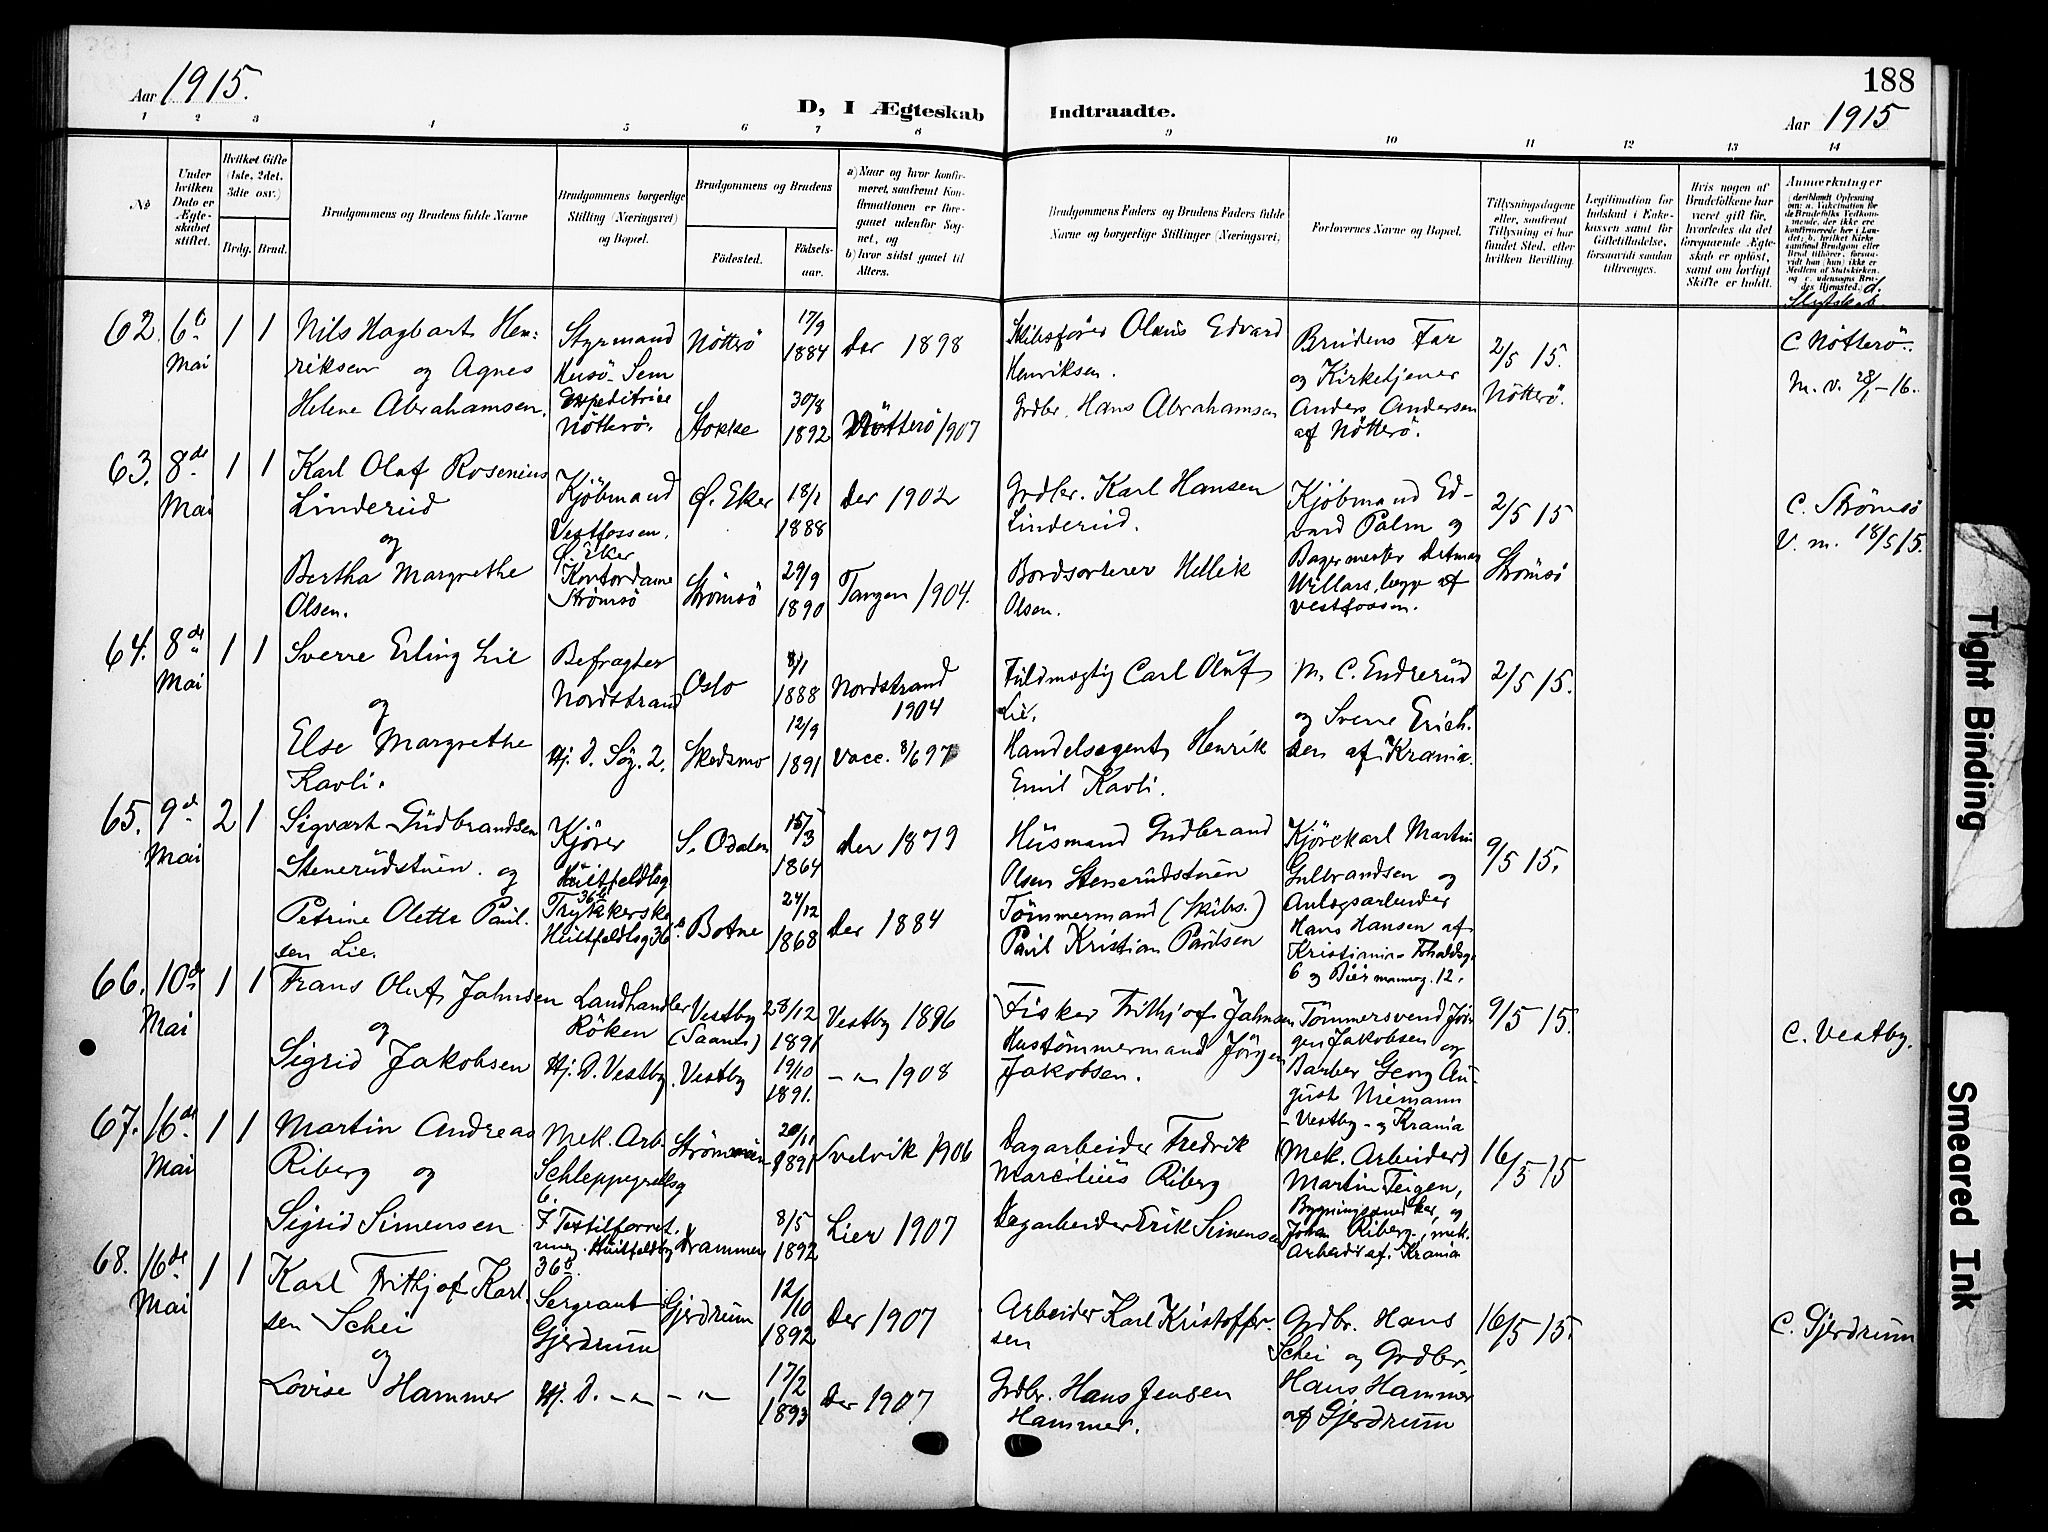 188
Aar 1915.
D, I Ægteskab Indtraadte.
Aar 1915
1 2 3 4 5 6 7 8 9 10 11 12 13 14
No
Under hvilken Dato er Ægteskabet stiftet.
Hvilket Gifte (1ste, 2det, 3die osv.)
Brdg. Brud.
Brudgommens og Brudens fulde Navne
Brudgommens borgerlige Stilling (Næringsvei) og Bopæl.
Brudgommens og Brudens
Födested. Födselsaar.
a) Naar og hvor konfirmeret, saafremt Konfirmationen er foregaaet udenfor Sognet, og
b) hvor sidst gaaet til Alters.
Brudgommens Faders og Brudens Faders fulde Navne og borgerlige Stillinger (Næringsvei)
Forlovernes Navne og Bopæl.
Tillysningsdagene eller, saafremt Tillysning ei har fundet Sted, efter hvilken Bevilling.
Legitimation for Indskud i Enkekassen samt for Giftetilladelse, forsaavidt saadan tiltrænges.
Hvis nogen af Brudefolkene har været gift før, hvorledes da det foregaaende Ægteskab er oplöst, samt om lovligt Skifte er holdt.
Anmærkninger (deriblandt Oplysning om: a. Vakcination for de Brudefolks Vedkommende, der ikke ere konfirmerede her i Landet; b. hvilket Kirkesamfund Brudgom eller Brud tilhörer, forsaavidt han (hun) ikke er Medlem af Statskirken, og c. udensogns Brudes Hjemsted.) d. Slegtskab
62. 6te Mai 1 1
Nils Hagbart Henriksen og Agnes
Helene Abrahamsen.
Styrmand Husö Sem
Expeditrice Nötterö.
Nötterö 17/9 1884 der 1898
Stokke 30/8 1892 Nötterö 1907
Skibsfører Olaus Edvard Henriksen.
Grdbr. Hans Abrahamsen
Brudens Far og Kirketjener Anders Andersen af Nötterö.
2/5 15. Nötterö.
C. Nötterö.
M. v. 28/1-16.
63. 8de Mai 1 1
Karl Olaf Rosenius Linderud
og
Bertha Margrethe Olsen.
Kjöbmand Vestfossen. Ö. Eker
Kontordame Strömsö
Ø. Eker 18/1 1888 der 1902
Strömsö 29/9 1890 Tangen 1904.
Grdbr. Karl Hansen Linderud.
Bordsorterer Hellik Olsen.
Kjöbmand Edvard Palm og
Bagermester Detmar begge af Vestfossen.
2/5 15 Strömsö
C. Strömsö
V. m. 18/5 15.
64. 8de Mai 1 1
Sverre Erling Lie
og
Else Margrethe Kavli.
Befragter Nordstrand
Hj. D. Søg. 2.
Oslo 8/1 1888 Nordstrand 1904
Skedsmo 12/9 1891 Vacc. 8/6 97
Fuldmægtig Carl Oluf Lie.
Handelsagent Henrik Emil Kavli.
M. C. Endrerud og Sverre Erichsen af Krania.
2/5 15.
65. 9de Mai 2 1
Sigvart Gudbrandsen Stenerudstuen og
Petrine Olette Paulsen Lie.
Kjörer Huitfeldtsg 36b
Trykkerske Huitfeldtsg 36b
S. Odalen 15/3 1864 der 1879
Botne 24/12 1868 der 1884
Husmand Gudbrand Olsen Stenerudstuen
Tömmermand (Skibs.) Paul Kristian Paulsen
Kjörekarl Martin Gulbrandsen og
Anlægsarbeider Hans Hansen af Kristiania
6 og Biermannsg. 12.
9/5 15.
66. 10de Mai 1 1
Frans Oluf Jahnsen
og
Sigrid Jakobsen
Landhandler Röken
Hj. D. Vestby.
Vestby (Saanes) 28/12 1891 Vestby 1896
Vestby 19/10 1891. -"- 1908
Fisker Frithjof Jahnsen
Hustömmermand Jörgen Jakobsen.
Tömmersvend Jörgen Jakobsen og
Barber Georg August Niemann
- Vestby - og Krania
9/5 15.
C. Vestby.
67. 16de Mai 1 1
Martin Andreas Riberg og
Sigrid Simensen
Mek. Arb. Schleppegrellsg 6.
F. Textilforretning. Huitfeldtsg 36b.
Strömmen 20/11 1891 Svelvik 1906
Drammen 8/5 1892 Lier 1907
Dagarbeider Fredrik Marcilius Riberg
Dagarbeider Erik Simensen
(Mek. Arbeider) Martin Teigen,
Bygningssnedker, og Johan Riberg, mek. Arbeider af Krania
16/5 15
68. 16de Mai 1 1
Karl Frithjof Karlsen Schei
og
Lovise Hammer
Sergeant Gjerdrum
Hj. D. -"-
Gjerdrum 12/10 1892 Der 1907
-"- 17/2 1893 der 1907
Arbeider Karl Kristoffersen
Grdbr. Hans Jensen Hammer.
Grdbr. Hans Schei og Grdbr. Hans Hammer af Gjerdrum
16/5 15.
C. Gjerdrum
Tight Binding
Smeared Ink